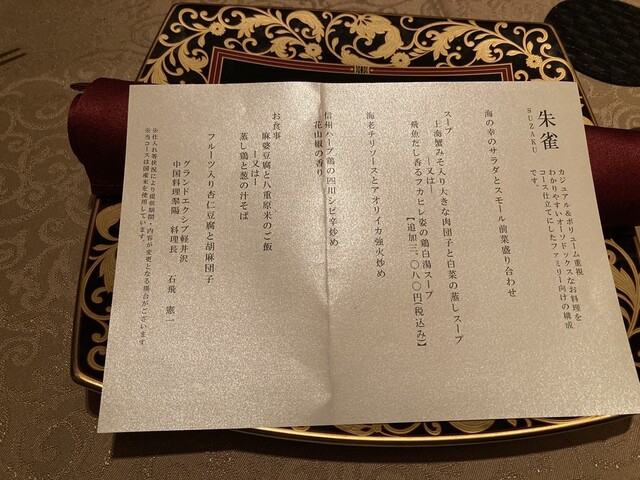 朱雀
SUZAKU
カジュアル&ボリューム重視
わかりやすいオーソドックスなお料理を
コース仕立てにしたファミリー向けの構成
です。
海の幸のサラダとスモール前菜盛り合わせ
スープ
上海蟹みそ入り大きな肉団子と白菜の蒸しスープ
―又は―
飛魚だし香るフカヒレ姿の鶏白湯スープ
【追加三、〇八〇円(税込み)】
海老チリソースとアオリイカ強火炒め
信州ハーブ鶏の四川シビ辛炒め
花山椒の香り
お食事
麻婆豆腐と八重原米のご飯
―又は―
蒸し鶏と葱の汁そば
フルーツ入り杏仁豆腐と胡麻団子
グランドエクシブ軽井沢
中国料理翠陽 料理長 石飛 憲一
※仕入れ等状況により提供期間・内容が変更となる場合がございます。
※当コースは国産米を使用しています。